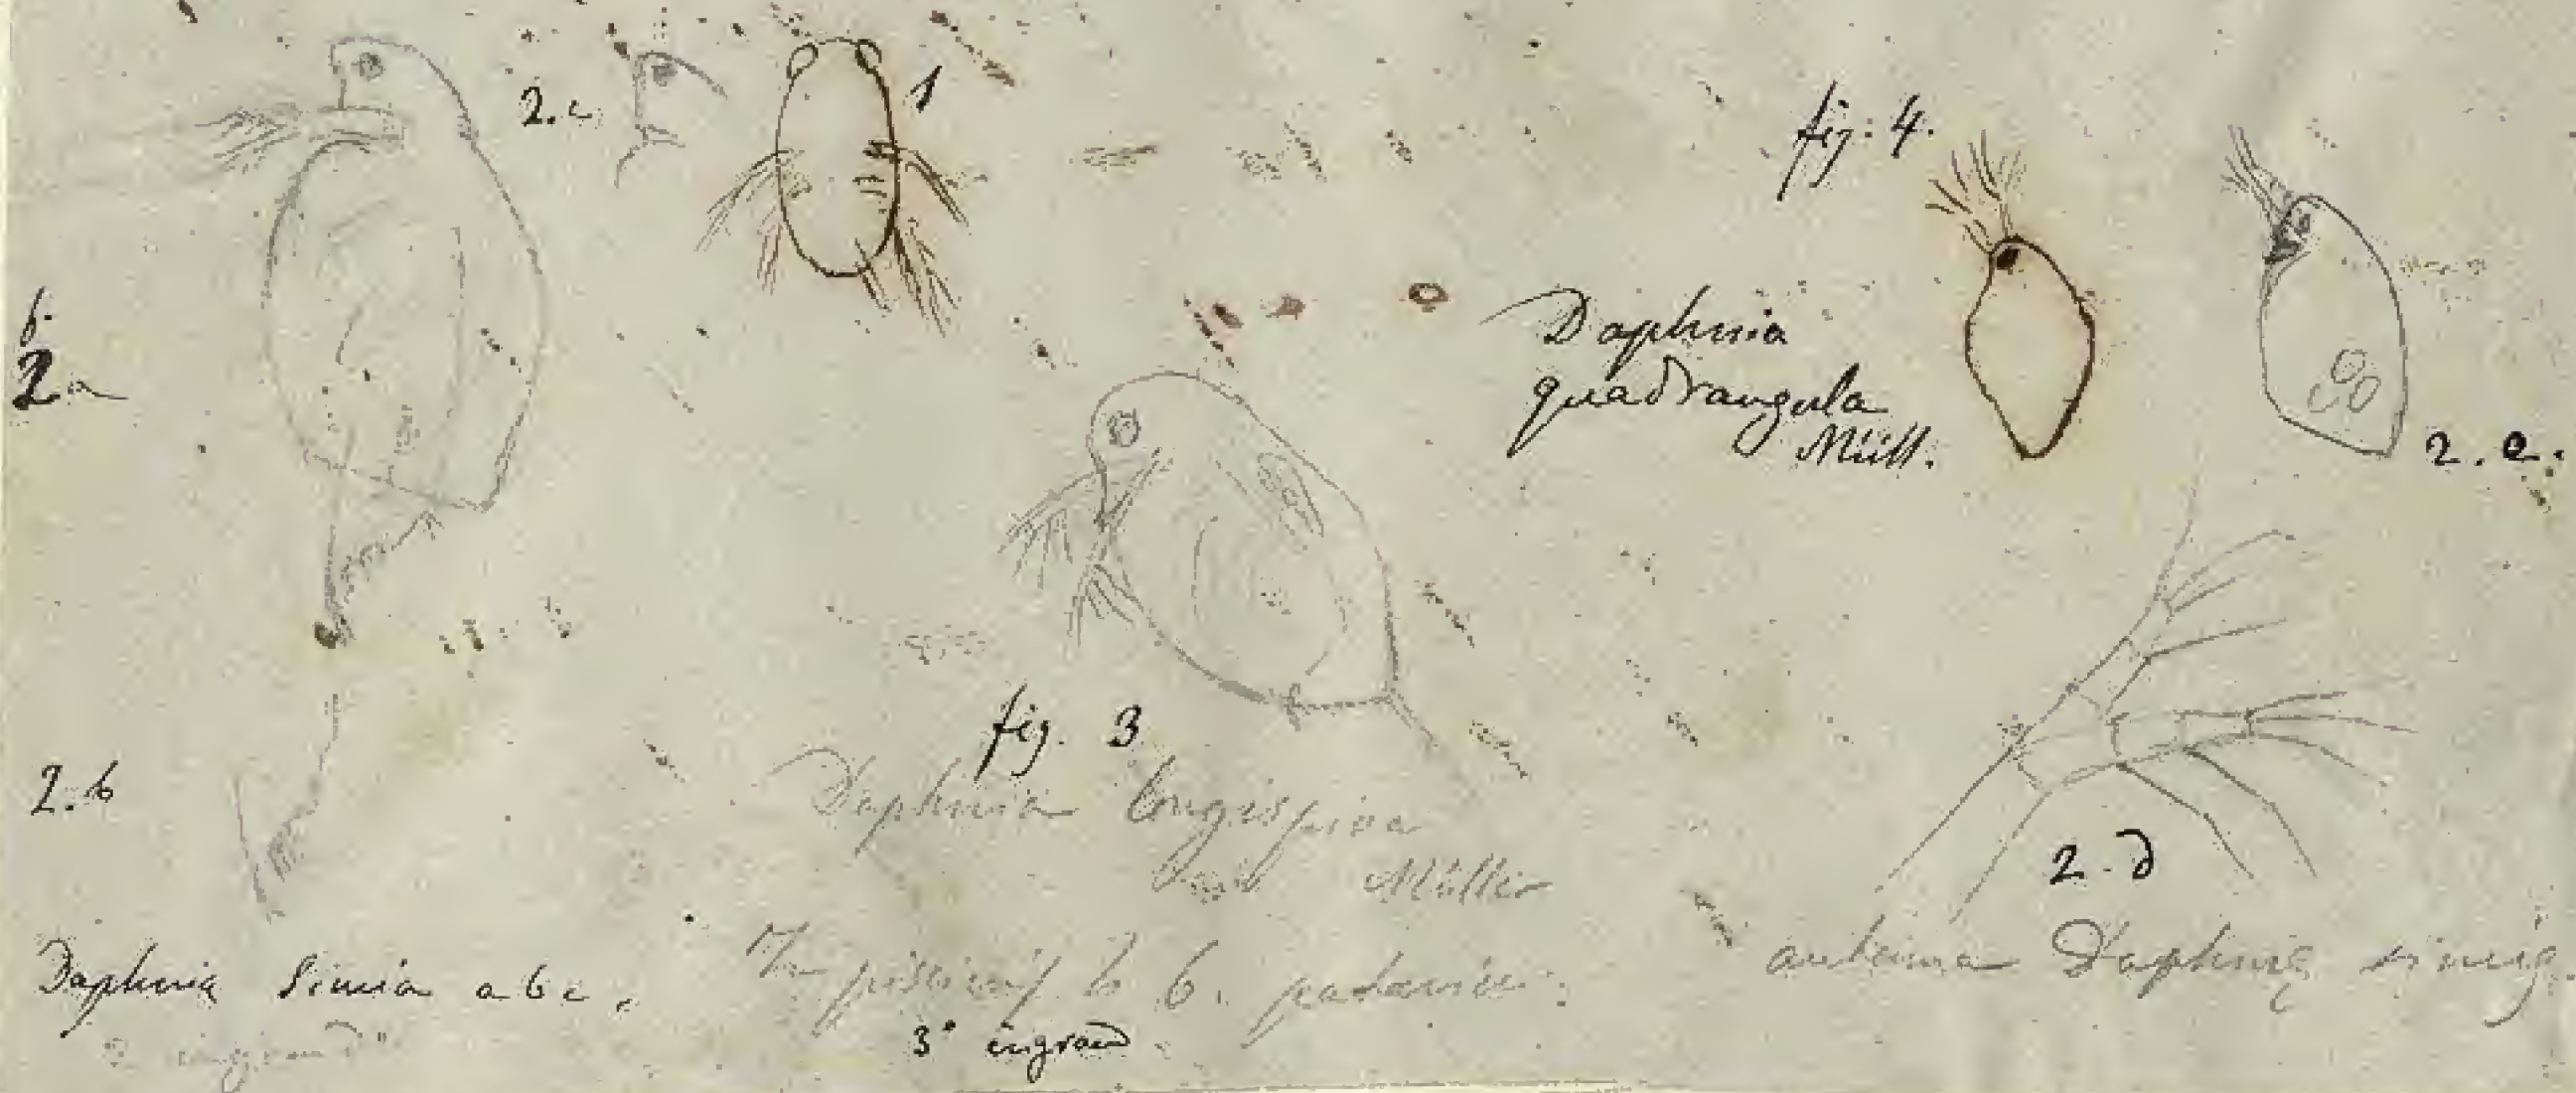 2.c
1
fig: 4.
f.
2a
Daphnia
quadrangula
Müll.
2.e.
fig. 3
2.b
Daphnia longispina
Müller
2.d
Daphnia Simia a b c.
antenna Daphnię simię
3° ingrand